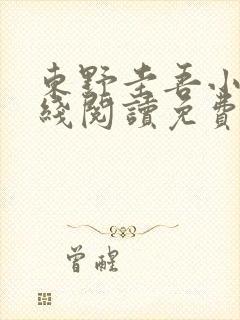 東野圭吾小
綫閱讀免費
曾醒